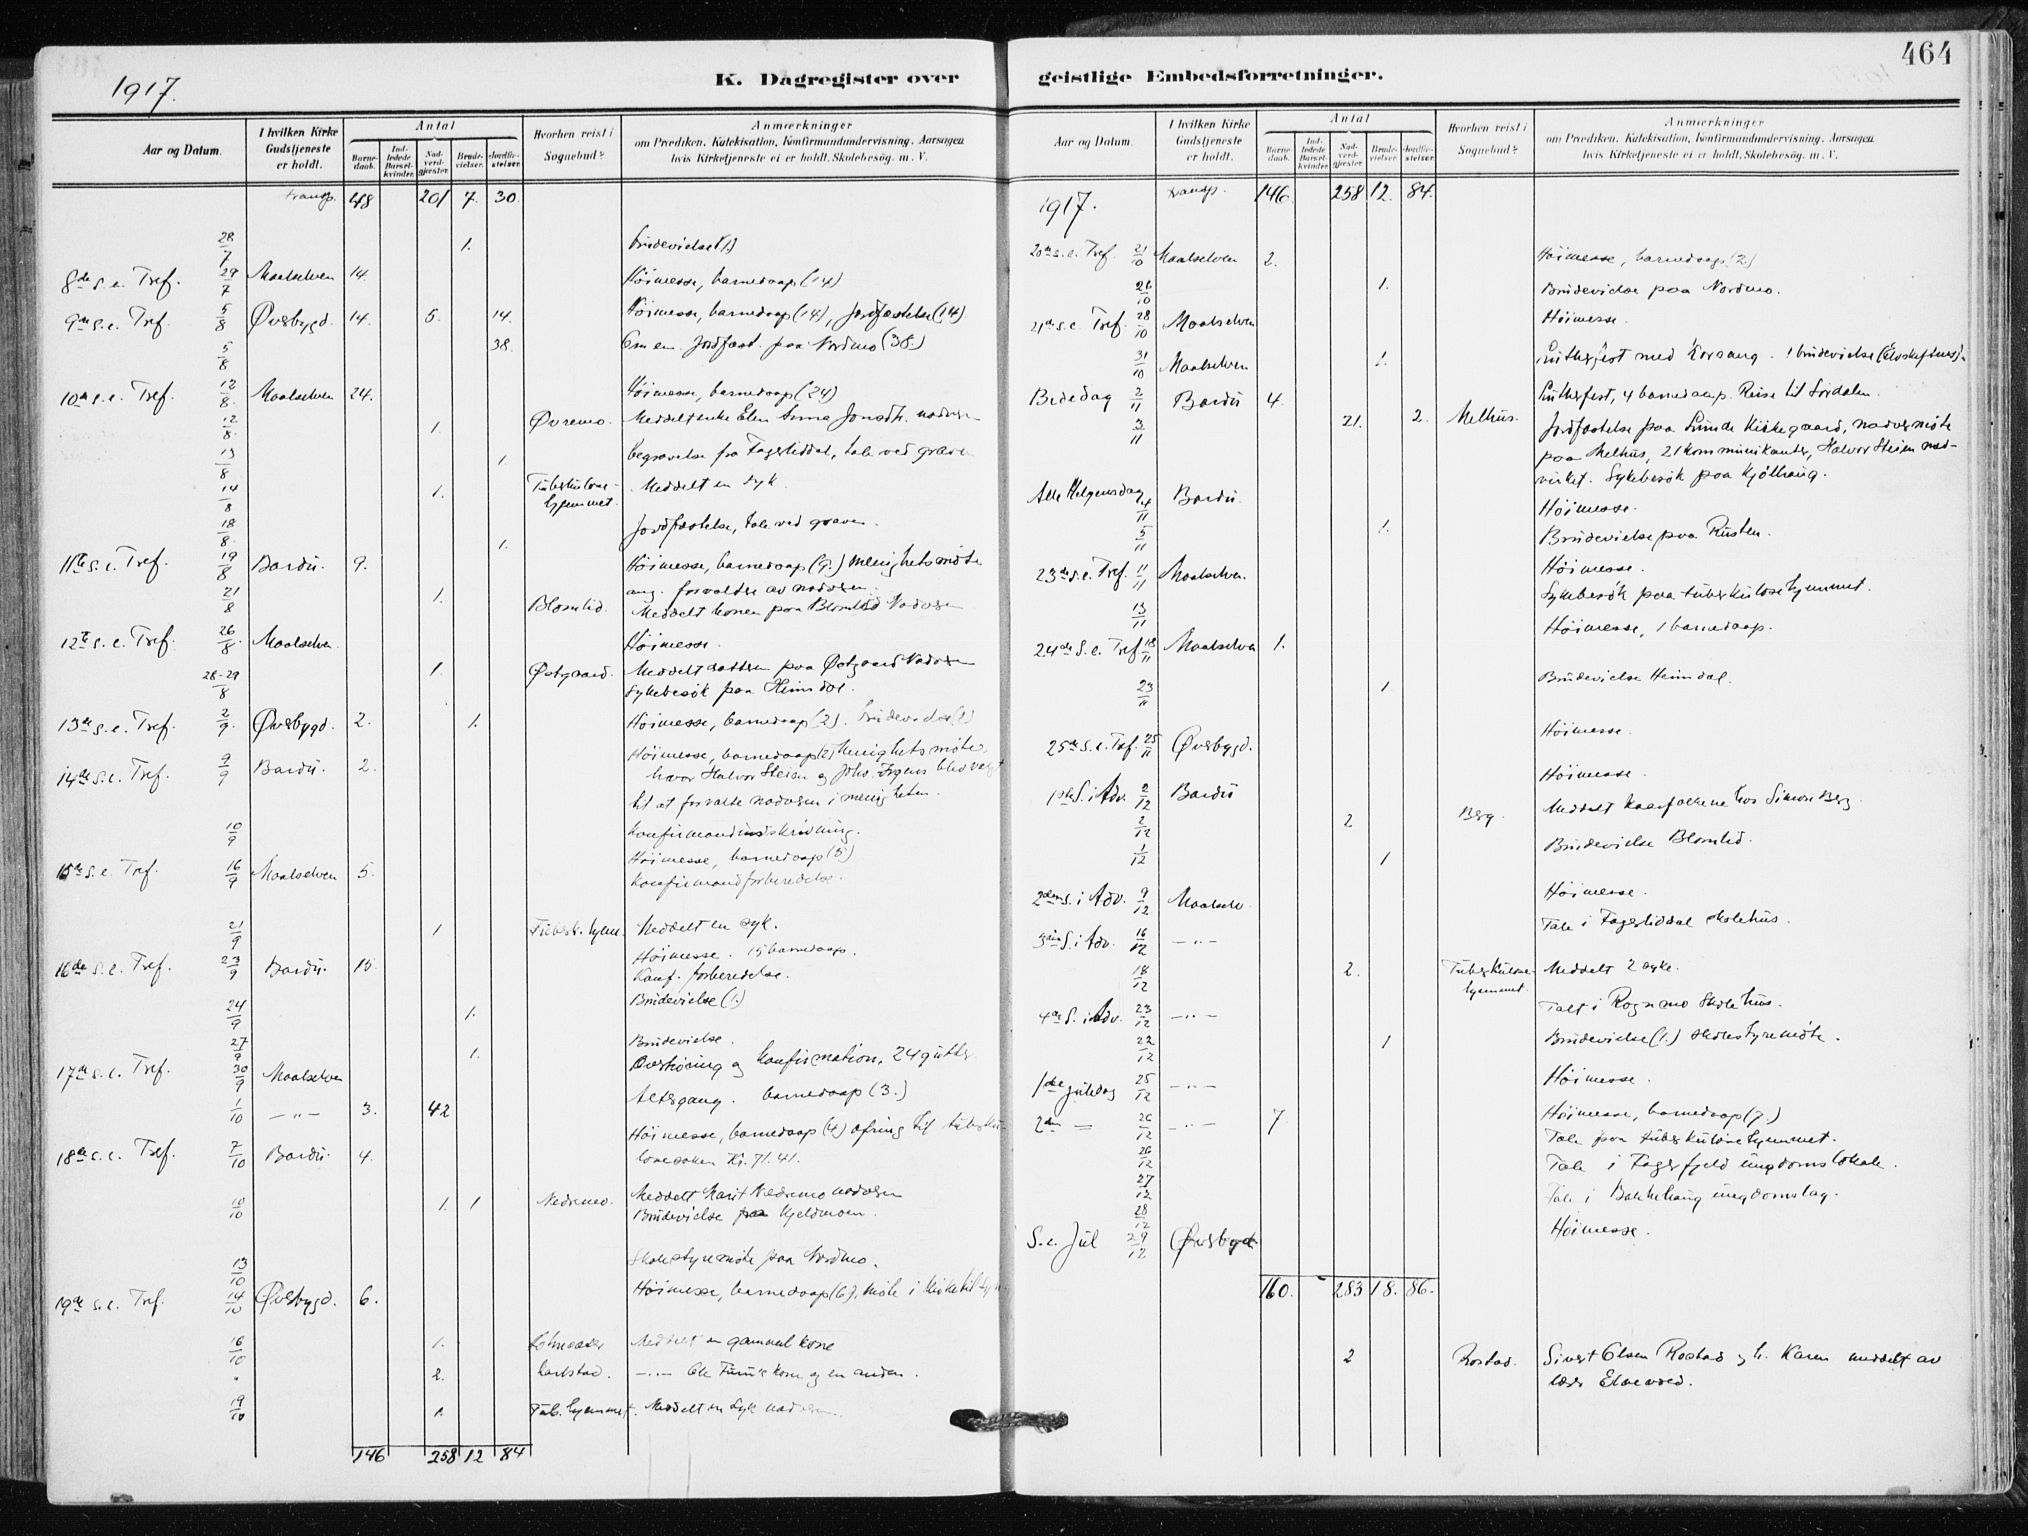 464
1917.
K. Dagregister over
geistlige Embedsforretninger.
Aar og Datum.
I hvilken Kirke
Gudstjeneste
er holdt.
Antal
Barne-
daab.
Ind-
ledede
Barsel-
kvinder.
Nad-
verd-
gjester.
Brude-
vielser.
Jordfæ-
stelser.
Hvorhen reist i
Sognebud?
Anmærkninger
om Prædiken, Katekisation, Konfirmandundervisning, Aarsagen
hvis Kirketjeneste ei er holdt, Skolebesög. m. V.
transp. 48 201 7. 30.
28/7 1. Brudevielse (1)
8de s.e. Tref. 29/7 Maalselven 14. Höimesse, barnedaap (14)
9de s.e. Tref. 5/8 Øverbygd. 14. 5. 14. Höimesse, barnedaap (14), Jordfæstelse (14)
5/8 38. Em en Jordfæst. paa Nordmo (38.)
10de s.e. Tref. 12/8. Maalselven 24. Höimesse, barnedaap (24)
12/8. 1. Øvremo. Meddelt enke Elen Anna Jonsdtr. nadveren
13/8 1. Begravelse fra Fagerliddal, tale ved graven
14/8 1. Tuberkulose-
hjemmet. Meddelt en syk.
18/8. 1. Jordfæstelse, tale ved graven.
11te s.e. Tref. 19/8 Bardu. 9. Höimesse, barnedaap (9.) menighetsmöte
ang. forvaldse av nadveren.
21/8 1. Blomlid. Meddelt konen paa Blomlid Nadveren
12te s.e. Tref. 26/8. Maalselven. Höimesse.
28-29/8 1. Østgaard. Meddelt datteren paa Østgaard Nadveren
Sykebesök paa Heimdal.
13de s.e. Tref. 2/9. Øverbygd. 2. 1. Höimesse, barnedaap (2). Brudevielse (1)
14de s.e. Tref. 9/9 Bardu. 2. Höimesse, barnedaap (2) Menighetsmöte,
hvor Halvor Steien og Johs. Irgens blev valgt
til at forvalte nadveren i menigheten.
10/9 Konfirmandindskrivning.
15de s.e. Tref. 16/9 Maalselven 5. Höimesse, barnedaap (5)
Konfirmandforberedelse.
21/9 1 Tuberk. hjem. Meddelt en syk.
16de s.e. Tref. 23/9 Bardu. 15. Höimesse. 15 barnedaap.
Konf. forberedelse.
24/9 1. Brudevielse (1.)
27/9 1. Brudevielse.
17de s.e. Tref. 30/9 Maalselven Overhöring og Konfirmation, 24 gutter
1/10 — „ — 3. 42 Altergang. barnedaap (3.)
18de s.e. Tref. 7/10 Bardu. 4. Höimesse, barnedaap (4) ofring til tuberku-
losesaken Kr. 71.41.
10/10 1. 1 Nedremo. Meddelt Marit Nedremo nadveren
Brudevielse paa Kjeldmoen.
13/10 Skolestyremöte paa Nordmo.
19de s.e. Tref. 14/10 Øverbygd. 6. Höimesse, barnedaap (6),
16/10 1. Meddelt en gammel kone
„ 2. Karlstad. — „ — kone og en anden.
19/10 1. Tub. hjemmet. Meddelt en syk nadveren.
146 258 12 84
Aar og Datum.
I hvilken Kirke
Gudstjeneste
er holdt.
Antal
Barne-
daab.
Ind-
ledede
Barsel-
kvinder.
Nad-
verd-
gjester.
Brude-
vielser.
Jordfæ-
stelser.
Hvorhen reist i
Sognebud?
Anmærkninger
om Prædiken, Katekisation, Konfirmandundervisning, Aarsagen
hvis Kirketjeneste ei er holdt, Skolebesög. m. V.
1917. transp. 146 258 12. 84.
20de s.e. Tref. 21/10 Maalselven 2. Höimesse, barnedaap (2)
26/10 1. Brudevielse paa Nordmo.
21de s.e. Tref. 28/10 Maalselven Höimesse.
31/10 Maalselven 1. Lutherfest med Korsang. 1 brudevielse
Bededag 2/11 Bardu 4. Lutherfest, 4 barnedaap. Reise til Sördalen.
3/11 21. 2. Melhus. Jordfæstelse paa Lunde Kirkegaard, nadvermöte
paa Melhus, 21 kommunikanter, Halvor Steien med-
virket. Sykebesök paa Kjölhaug.
Alle Helgensdag 4/11 Bardu. Höimesse.
5/11 1. Brudevielse paa Rusten.
23de s.e. Tref. 11/11 Maalselven. Höimesse.
13/11 Sykebesök paa tuberkulosehjemmet.
24de s.e. Tref. 18/11 Maalselven 1. Höimesse, 1 barnedaap.
23/11 1. Brudevielse Heimdal.
25de s.e. Tref. 25/11 Øverbygd. Höimesse.
1ste S. i Adv. 2/12 Bardu Höimesse.
2/12 2 Berg. Meddelt kaarfolkene hos Simon Berg.
1/12 1 Brudevielse Blomlid.
2den s. i Adv. 9/12 Maalselv. Höimesse.
3die S. i Adv. 16/12 — „ — Tale i Fagerliddal skolehus.
18/12 2. Tuberkulose-
hjemmet. Meddelt 2 syke.
4de S. i Adv. 23/12 — „ — Talt i Rognmo Skolehus.
22/12 1 Brudevielse (1.) skolestyremöte.
1ste juledag 25/12 — „ — Höimesse.
2den — 26/12 — „ — 7. Höimesse, barnedaap (7.)
26/12 Tale paa tuberkulosehjemmet.
27/12 Tale i Fagerfjeld ungdomslokale.
28/12 Tale i Bakkehaug ungdomslag.
S.e. Jul 29/12 Øverbygd. Höimesse.
160. 283 18. 86.
2 Rostad. Sivert Olsen Rostad og h. Karen meddelt av
lærer Elvevold.